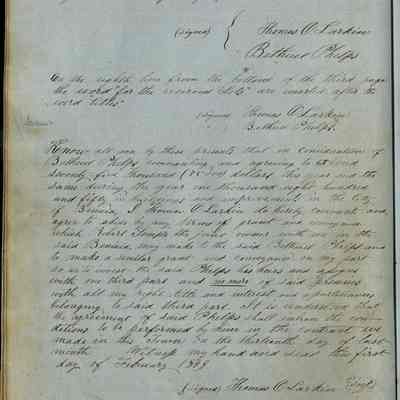 (signed) Thomas O Larkin
Bethuel Phelps
On the eighth line from the bottom of the third page
the word "for the reserved lots" are inserted after the
word titles
(signed) Thomas O Larkin
Bethuel Phelps.
Know all men by these presents that in consideration of
Bethuel Phelps covenanting and agreeing to expend
seventy five thousand (75,000) dollars this year and the
same during the year one thousand eight hundred
and fifty in buildings and improvements in the City
of Benicia, I Thomas O Larkin do hereby covenant and
agree to abide by any terms of grant or conveyance
which Robert Semple the joint owner with me in the
said Benicia, may make to the said Bethuel Phelps and
to make a similar grant and conveyance on my part
so as to invest the said Phelps his heirs and assigns
with one third part and no more of said premises
with all my right title and interest and appurtenances
belonging to said third part. It is understood that
the agreement of said Phelps shall inform the con-
ditions to be performed by him in the contract we
made in this town on the thirteenth day of last
month. Witness my hand and seal this first
day of February 1849
(signed) Thomas O Larkin